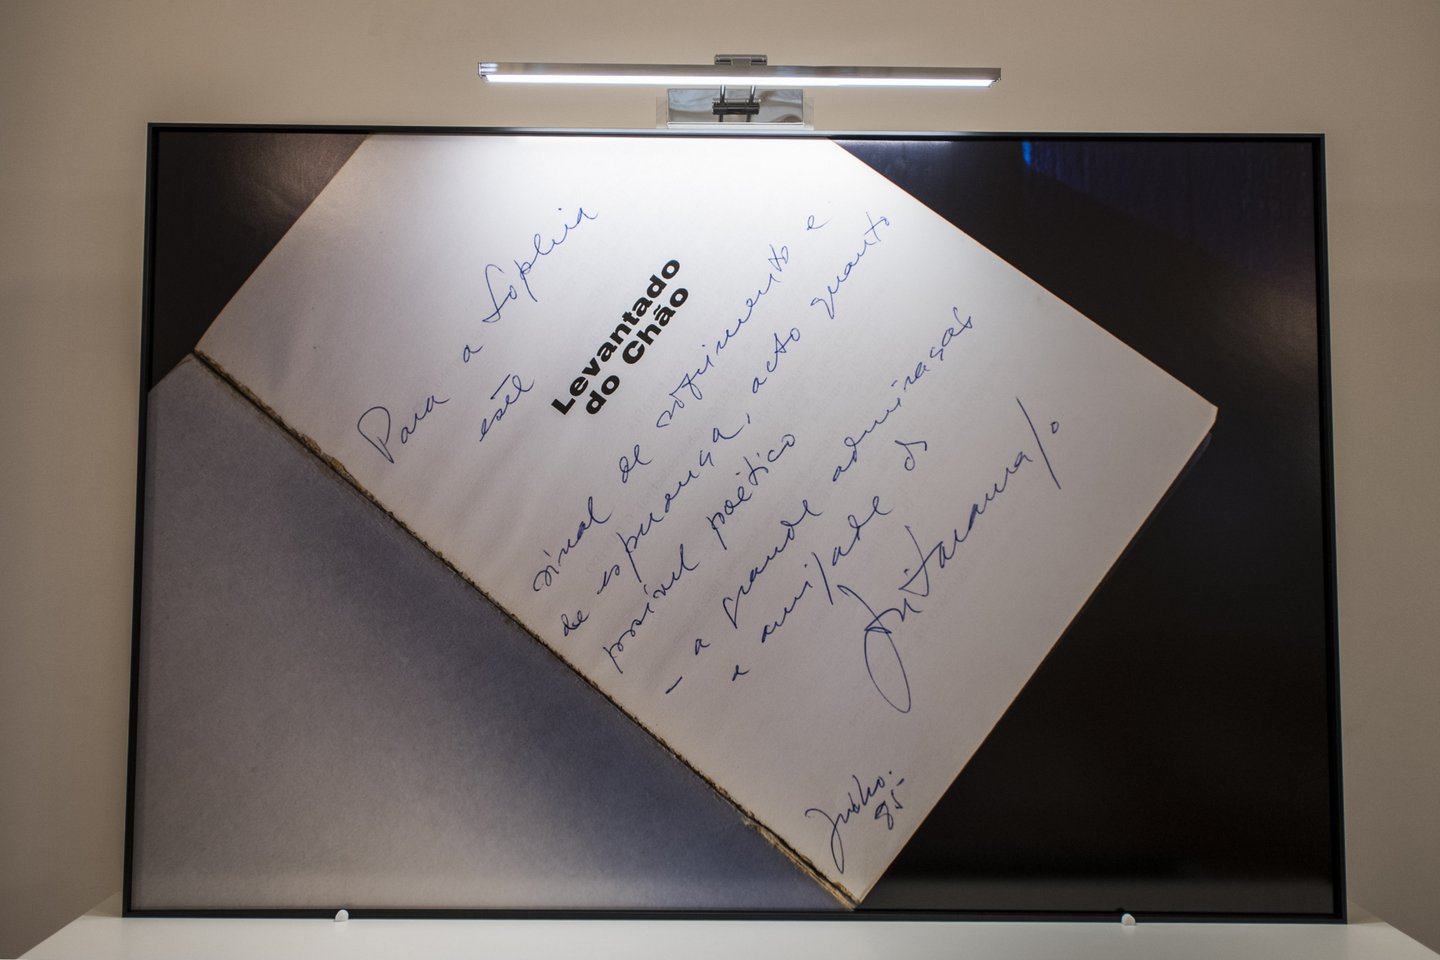 Para a Sophia
este
Levantado
do Chão
sinal de sofrimento e
de esperança, acto quanto
possível poético
– a grande admiração
e amizade do
José Saramago
Julho.
85